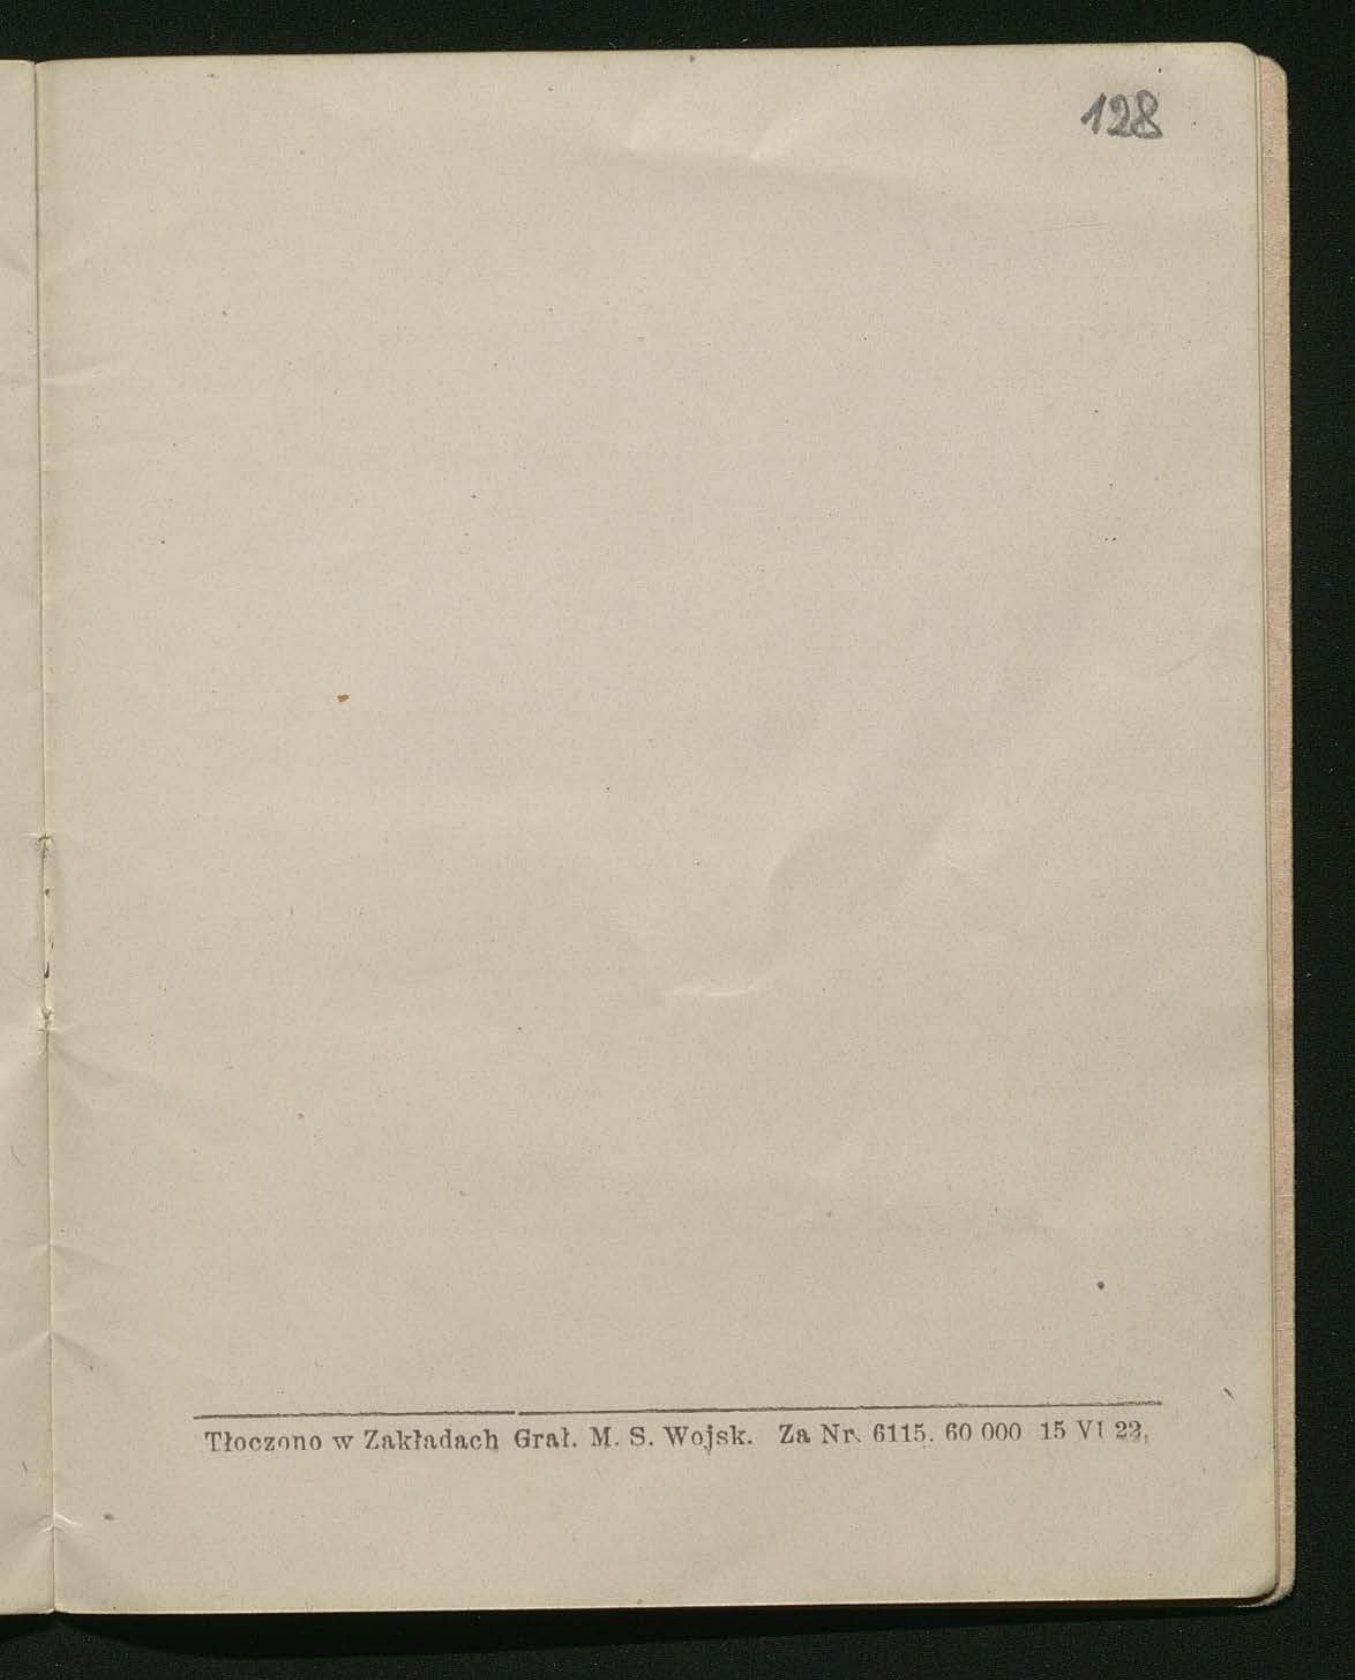 128
Tłoczono w Zakładach Grał. M. S. Wojsk. Za Nr. 6115. 60 000 15 VI